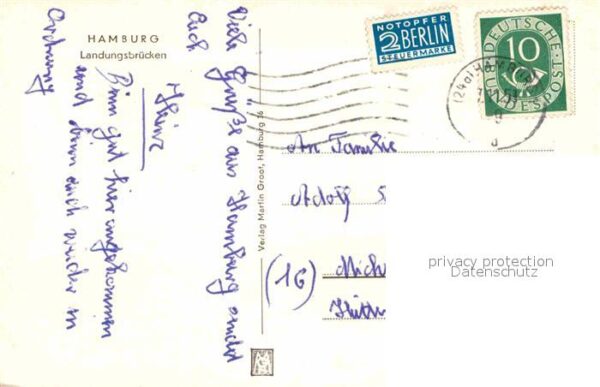 HAMBURG
Landungsbrücken
Viele Grüße aus Hamburg sendet
Euch
Heinz
Binn gut hier angekommen
und binn auch wieder in
Ordnung
Verlag Martin Groot, Hamburg 36
NOTOPFER
2 BERLIN
STEUERMARKE
DEUTSCHE BUNDESPOST
10
(24a) HAMBURG
An Familie
Adolf S
(16) Mich
Hütt
privacy protection
Datenschutz